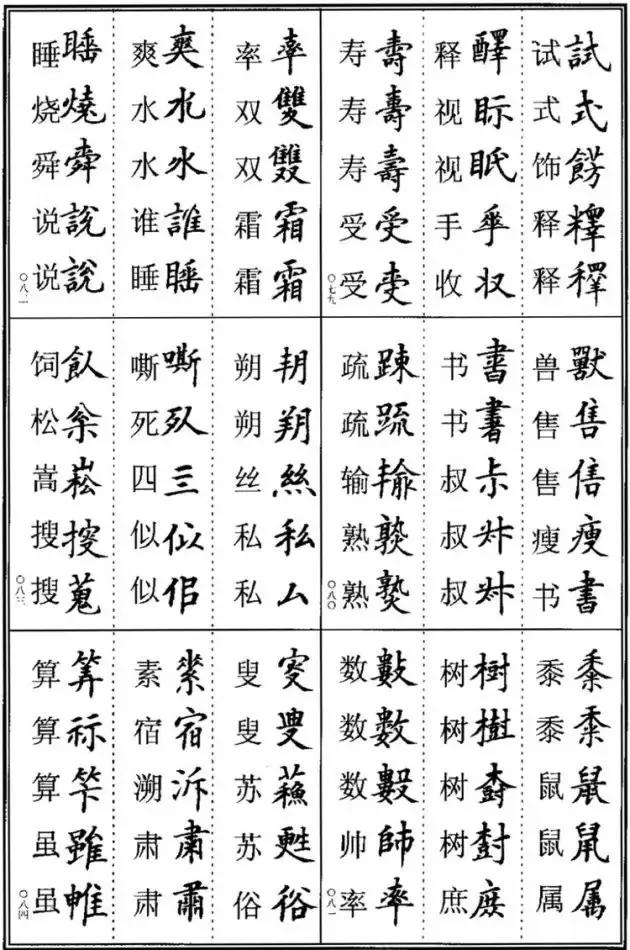 试 試
式 式
饰 餝
释
释 釋
释 醳
视 眎
视 眡
手
收 収
寿 壽
寿 壽
寿 壽
受 受
受
〇七九
兽 獸
售 售
售
瘦 瘦
书 書
书 書
书 書
叔 尗
叔
叔
疏 踈
疏 疏
输 输
熟
熟
〇八〇
黍 黍
黍
鼠 鼠
鼠
属 属
树 樹
树 樹
树
树 尌
庶 庶
数 數
数 數
数
帅 帥
率 率
〇八一
率 率
双 雙
双 雙
霜 霜
霜 霜
爽 爽
水 水
水 氷
谁 誰
睡 睡
睡 睡
烧 燒
舜 舜
说 說
说 説
〇八二
朔
朔 朔
丝 絲
私 私
私 厶
嘶 嘶
死
四 三
似 似
似 佀
饲 飤
松 枀
嵩 崧
搜
搜 蒐
〇八三
叟
叟
苏 蘓
苏 甦
俗 俗
素
宿 宿
溯 泝
肃 肅
肃 肅
算 筭
算 祘
算
虽 雖
虽
〇八四